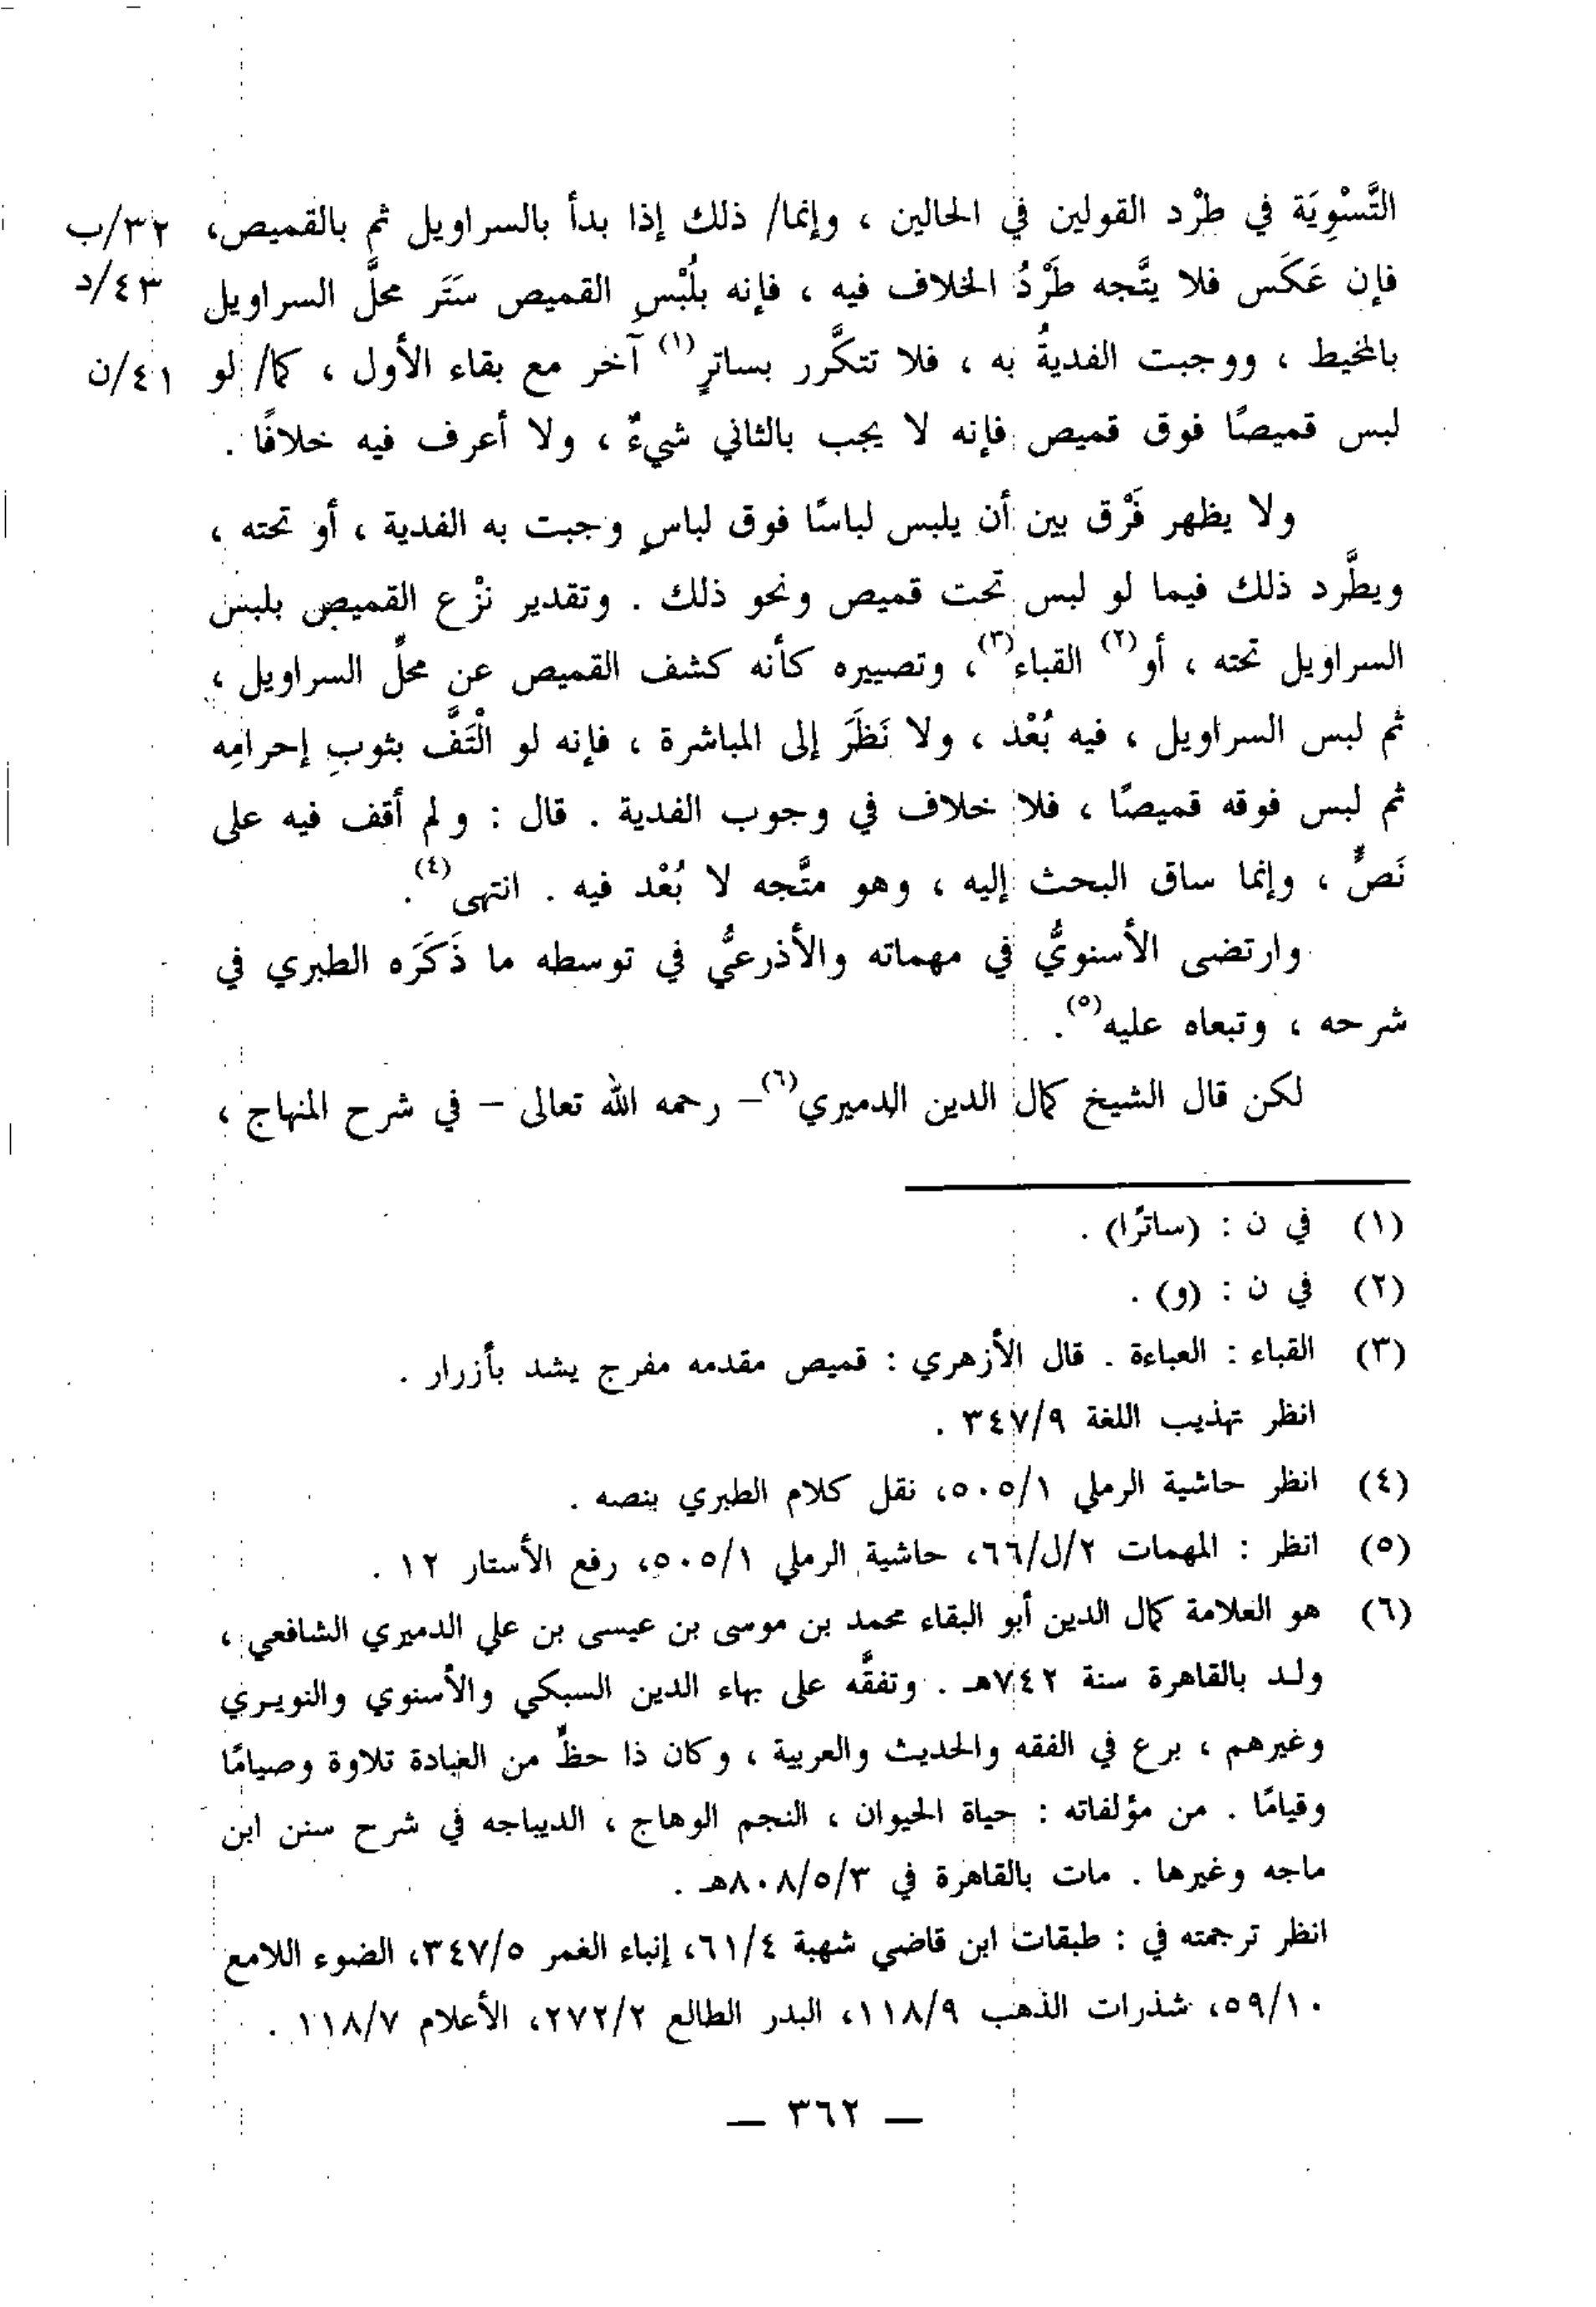 التَّسْوِيَة في طرْد القولين في الحالين ، وإنما/ ذلك إذا بدأ بالسراويل ثم بالقميص، ٣٢/ب
فإن عَكَس فلا يتَّجه طَرْدُ الخلاف فيه ، فإنه بلُبْسِ القميص سَتَر محلَّ السراويل ٤٣/د
بالمخيط ، ووجبت الفديةُ به ، فلا تتكَّرر بساترٍ(١) آخر مع بقاء الأول ، كما/ لو ٤١/ن
لبس قميصًا فوق قميص فإنه لا يجب بالثاني شيءٌ ، ولا أعرف فيه خلافًا .
ولا يظهر فَرْق بين أن يلبس لباسًا فوق لباسٍ وجبت به الفدية ، أو تحته ،
ويطَّرد ذلك فيما لو لبس تحت قميص ونحو ذلك . وتقدير نزْع القميص بلبس
السراويل تحته ، أو(٢) القباء(٣)، وتصييره كأنه كشف القميص عن محلِّ السراويل ،
ثم لبس السراويل ، فيه بُعْد ، ولا نَظَرَ إلى المباشرة ، فإنه لو الْتَفَّ بثوبِ إحرامِه
ثم لبس فوقه قميصًا ، فلا خلاف في وجوب الفدية . قال : ولم أقف فيه على
نَصٍّ ، وإنما ساق البحث إليه ، وهو متَّجه لا بُعْد فيه . انتهى(٤).
وارتضى الأسنويُّ في مهماته والأذرعيُّ في توسطه ما ذَكَرَه الطبري في
شرحه ، وتبعاه عليه(٥).
لكن قال الشيخ كمال الدين الدميري(٦)– رحمه الله تعالى – في شرح المنهاج ،
(١) في ن : (ساترًا) .
(٢) في ن : (و) .
(٣) القباء : العباءة . قال الأزهري : قميص مقدمه مفرج يشد بأزرار .
انظر تهذيب اللغة ٣٤٧/٩ .
(٤) انظر حاشية الرملي ٥٠٥/١، نقل كلام الطبري بنصه .
(٥) انظر : المهمات ٢/ل/٦٦، حاشية الرملي ٥٠٥/١، رفع الأستار ١٢ .
(٦) هو العلامة كمال الدين أبو البقاء محمد بن موسى بن عيسى بن علي الدميري الشافعي ،
ولد بالقاهرة سنة ٧٤٢هـ . وتفقَّه على بهاء الدين السبكي والأسنوي والنويري
وغيرهم ، برع في الفقه والحديث والعربية ، وكان ذا حظٍّ من العبادة تلاوة وصيامًا
وقيامًا . من مؤلفاته : حياة الحيوان ، النجم الوهاج ، الديباجه في شرح سنن ابن
ماجه وغيرها . مات بالقاهرة في ٨٠٨/٥/٣هـ .
انظر ترجمته في : طبقات ابن قاضي شهبة ٦١/٤، إنباء الغمر ٣٤٧/٥، الضوء اللامع
٥٩/١٠، شذرات الذهب ١١٨/٩، البدر الطالع ٢٧٢/٢، الأعلام ١١٨/٧ .
— ٣٦٢ —